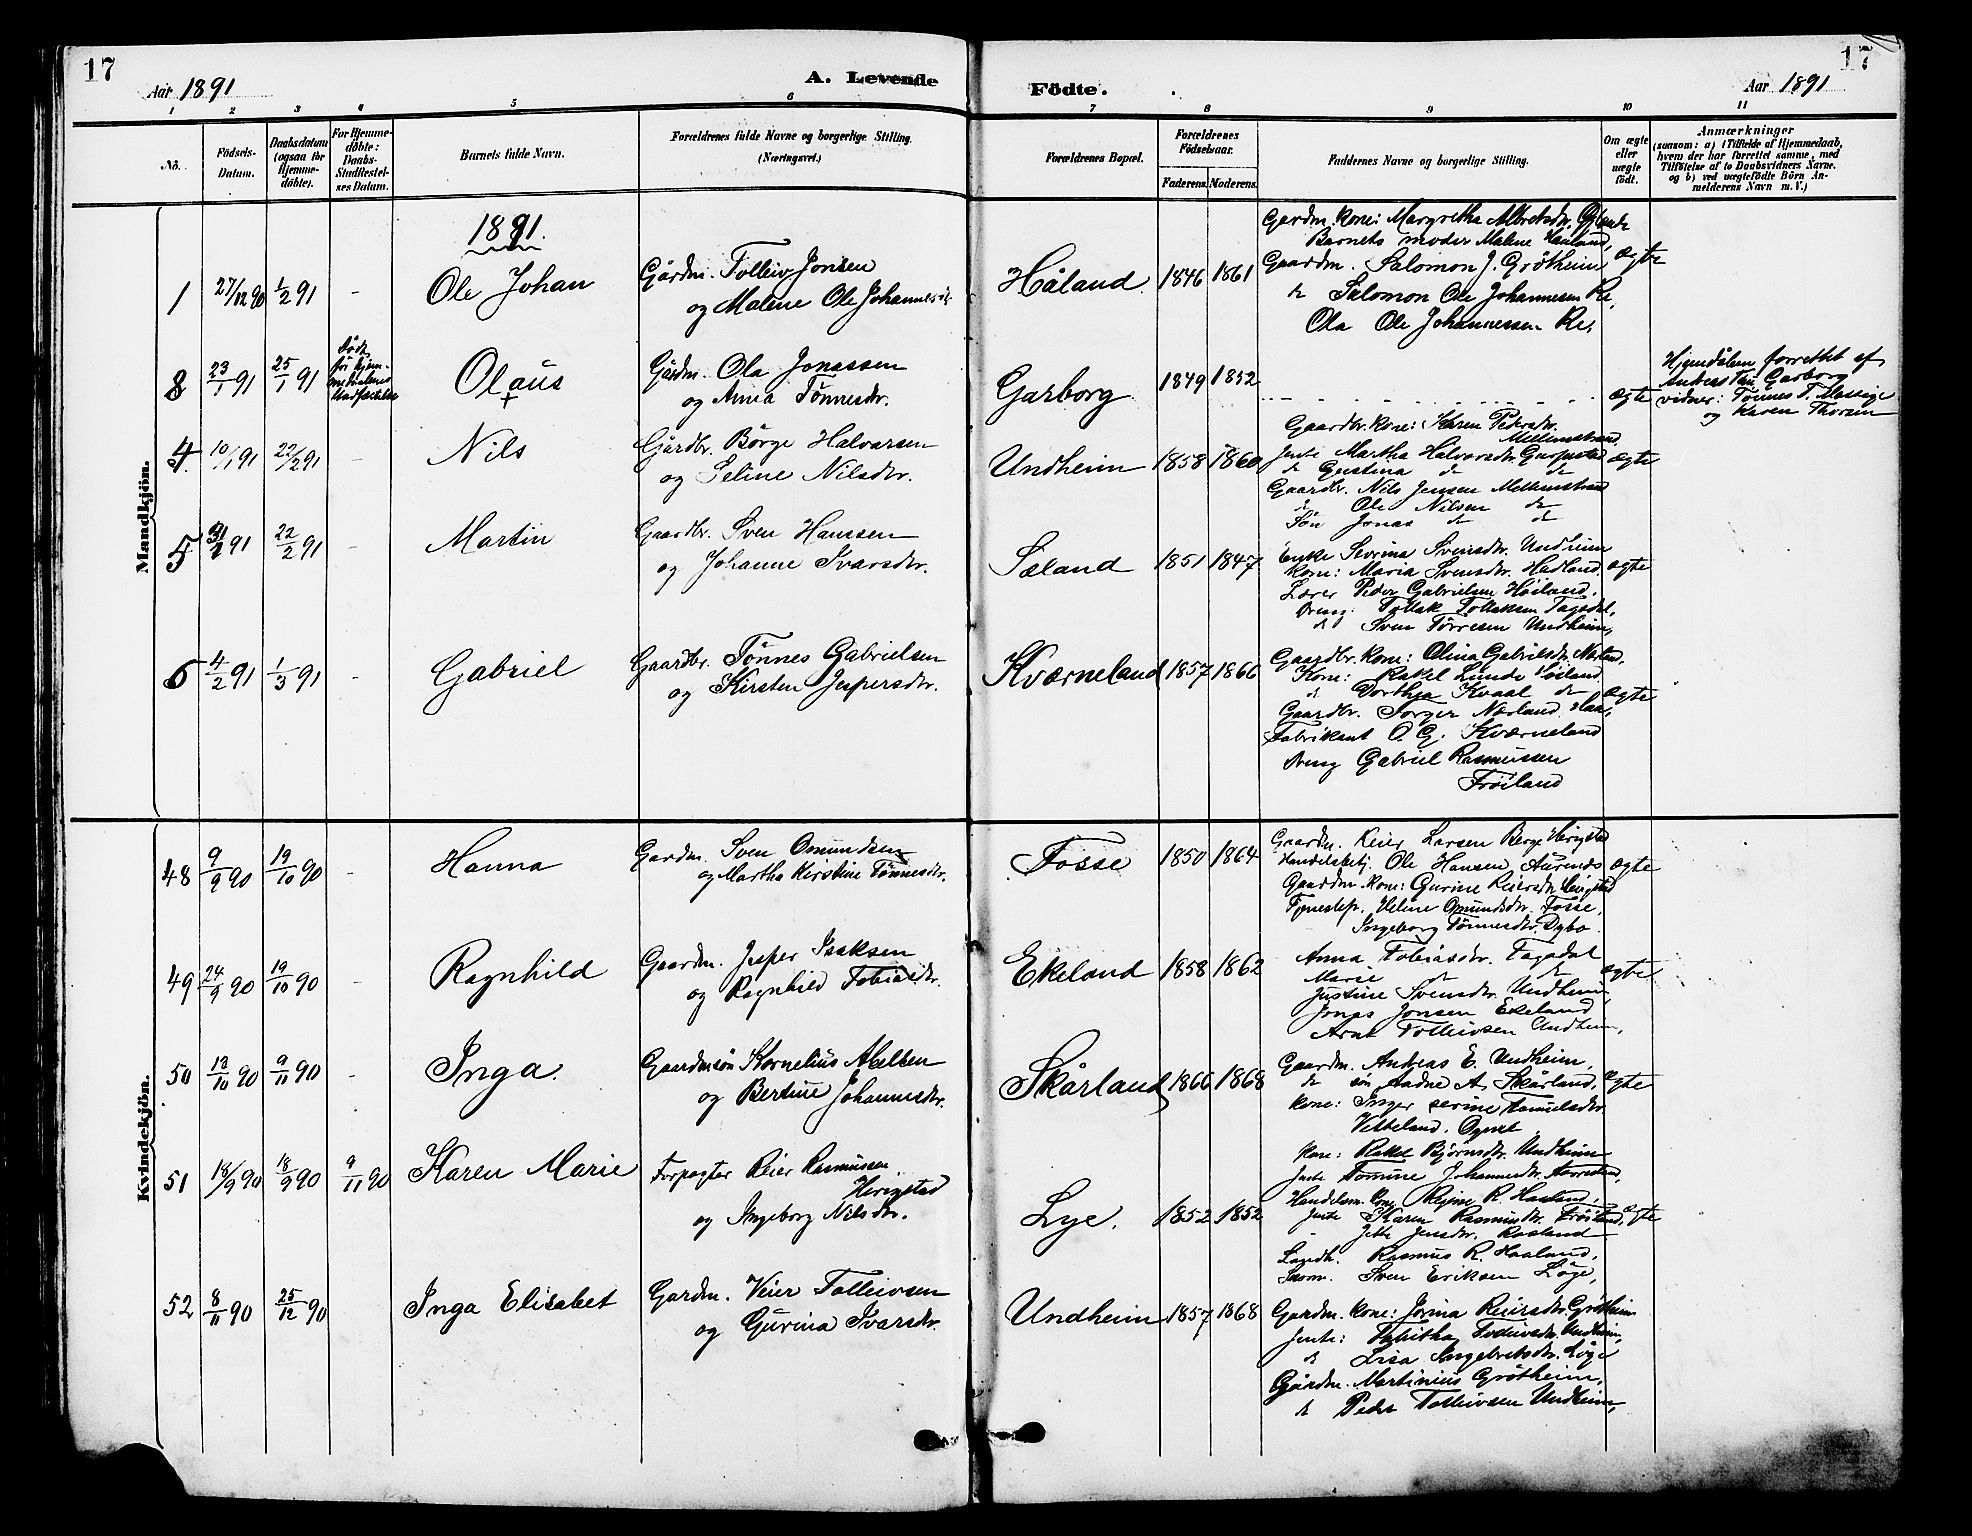 17
Aar 1891
A. Levende
Födte.
17
Aar 1891
1 2 3 4 5 6 7 8 9 10 11
No.
Födsels-
Datum.
Daabsdatum
(ogsaa for
Hjemme-
döbte).
For Hjemme-
döbte:
Daabs-
Stadfæstel-
ses Datum.
Barnets fulde Navn.
Forældrenes fulde Navne og borgerlige Stilling.
(Næringsvei.)
Forældrenes Bopæl.
Forældrenes
Födselsaar.
Faderens. Moderens.
Faddernes Navne og borgerlige Stilling.
Om ægte
eller
uægte
födt.
Anmærkninger
(saasom: a) i Tilfælde af Hjemmedaab,
hvem der har forrettet samme, med
Tilföielse af to Daabsvidners Navne.
og b) ved uægtefödte Börn An-
melderens Navn m. V.)
Mandkjön.
1891.
1 27/12 90 1/2 91 - Ole Johan
Gårdm. Tolleiv Jonsen
og Malene Ole Johannesdr
Håland 1846 1861
Gardm. kone: Margretha
Barnets moder Malene Håland,
Gaardm. Salomon J. Grötheim
d Salomon Ole Johannesen Re,
Ola Ole Johannessen Re,
ægte
8 23/1 91 25/1 91
Olaus
+
Gårdm. Ola Jonassen
og Anna Tønnesdr.
Garborg 1849 1852
ægte
Hjemdåben forrettet af
Andreas Garborg
vidner: Tønnes T.
og Karen Thorsen
4 10/1 91 22/2 91 - Nils
Gårdbr. Börge Halvorsen
og Seline Nilsdtr.
Undheim 1858 1860
Gaardbr. kone: Karen Pedersdr.
Mellemstrand
Jente Martha Halvorsdtr.
d Gustina d d
Gaardbr. Nils Jensen Mellemstrand
d Ole Nilsen d
Søn Jonas d d
ægte
5 91 22/2 91 - Martin
Gaardbr. Sven Hansen
og Johanne Ivarsdtr.
Sæland 1851 1847
Enke Severina Svensdtr. Undheim
Kone: Maria Svensdtr. Hadland
Lærer Peder Gabrielsen Høiland,
Dreng: Tollak Tollaksen Tagedal,
d Sven Tørresen Undheim,
ægte
6 4/2 91 1/3 91 - Gabriel
Gaardbr. Tönnes Gabrielsen
og Kirsten Jespersdtr.
Kværneland 1857 1866
Gaardbr. kone: Olina Gabrielsdtr
Kone: Rakel Lende Höiland
d Dorthea Kvaal d
Gaardbr. Torger Nærland Haa,
Fabrikant O. G. Kværneland
Dreng Gabriel Rasmussen
Fröiland
ægte
Kvindekjön.
48 9/9 90 19/10 90 - Hanna
Gardm. Sven Omundsen
og Martha Kirstine Tönnesdtr.
Fosse 1850 1864
Gaardm. Reier Larsen Berge Herigstad
Handelsbetj. Ole Hansen
Gaardm. kone: Gurine Reiersdtr Herigstad
Tjenestep. Heline Omundsdtr. Fosse,
Ingeborg Tönnesdtr. Dybo.
ægte
49 24/9 90 19/10 90 - Ragnhild
Gaardm. Jesper Isaksen
og Ragnhild Tobiasdtr.
Ekeland 1858 1862
Anna Tobiasdtr. Tagedal
Marie d d
Justine Svensdtr. Undheim
Jonas Jonsen Ekeland
Tolleivsen Undheim,
ægte
50 13/10 90 9/11 90 - Inga.
Gaardmsön Kornelius Abelsen
og Bertine Johannesdtr.
Skårland 1866 1868
Gaardm. Andreas E. Undheim
d søn Aadne A. Skårland,
Kone: Inger Serine Samuelsdtr
Vetteland, Ogne
Kone: Rakel Björnsdtr. Undheim
Jente Tomine Johannesdtr.
ægte
51 18/9 90 18/9 90 9/11 90 Karen Marie
Forpagter Reier Rasmussen
Herigstad
og Ingeborg Nilsdtr.
Lye. 1852 1852
Handelsm. kone Regine R. Haaland,
Jente Karen Rasmusdtr. Fröiland,
Jensdtr. Rosland
Rasmus R. Haaland,
Sven Eriksen Löge,
ægte
52 8/11 90 25/12 90 Inga Elisabet
Gardm. Veier Tolleivsen
og Gurina Ivarsdtr.
Undheim 1857 1868
Gardm. kone: Jorina Reiersdtr. Grötheim
Jente: Tabitha Tolleivsdtr. Undheim,
d Lisa Ingebretsdtr. Löge
Gårdm. Martinius Grötheim,
d Peder Tolleivsen Undheim,